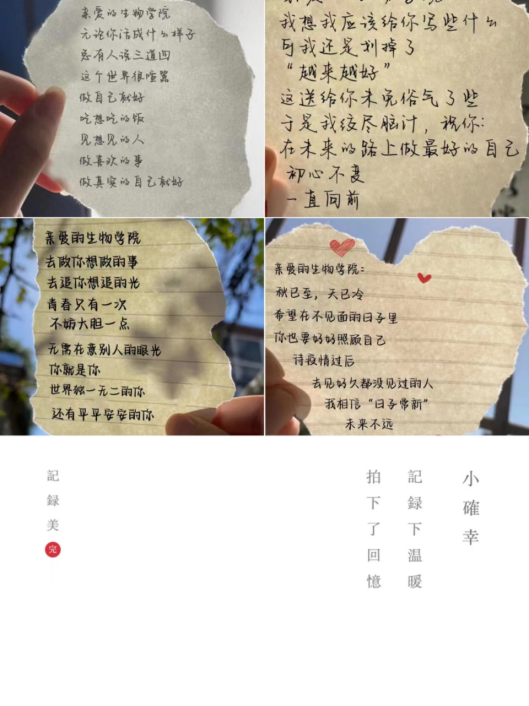 亲爱的生物学院
无论你活成什么样子
总有人说三道四
这个世界很喧嚣
做自己就好
吃想吃的饭
见想见的人
做喜欢的事
做真实的自己就好
我想我应该给你写些什么
可我还是划掉了
“越来越好”
这送给你未免俗气了些
于是我绞尽脑汁，祝你:
在未来的路上做最好的自己
初心不变
一直向前
亲爱的生物学院
去做你想做的事
去追你想追的光
青春只有一次
不妨大胆一点
无需在意别人的眼光
你就是你
世界独一无二的你
还有平平安安的你
亲爱的生物学院：
秋已至，天已冷
希望在不见面的日子里
你也要好好照顾自己
待疫情过后
去见好久都没见过的人
我相信“日子常新”
未来不远
小確幸
記録下温暖
拍下了回憶
記録美
完